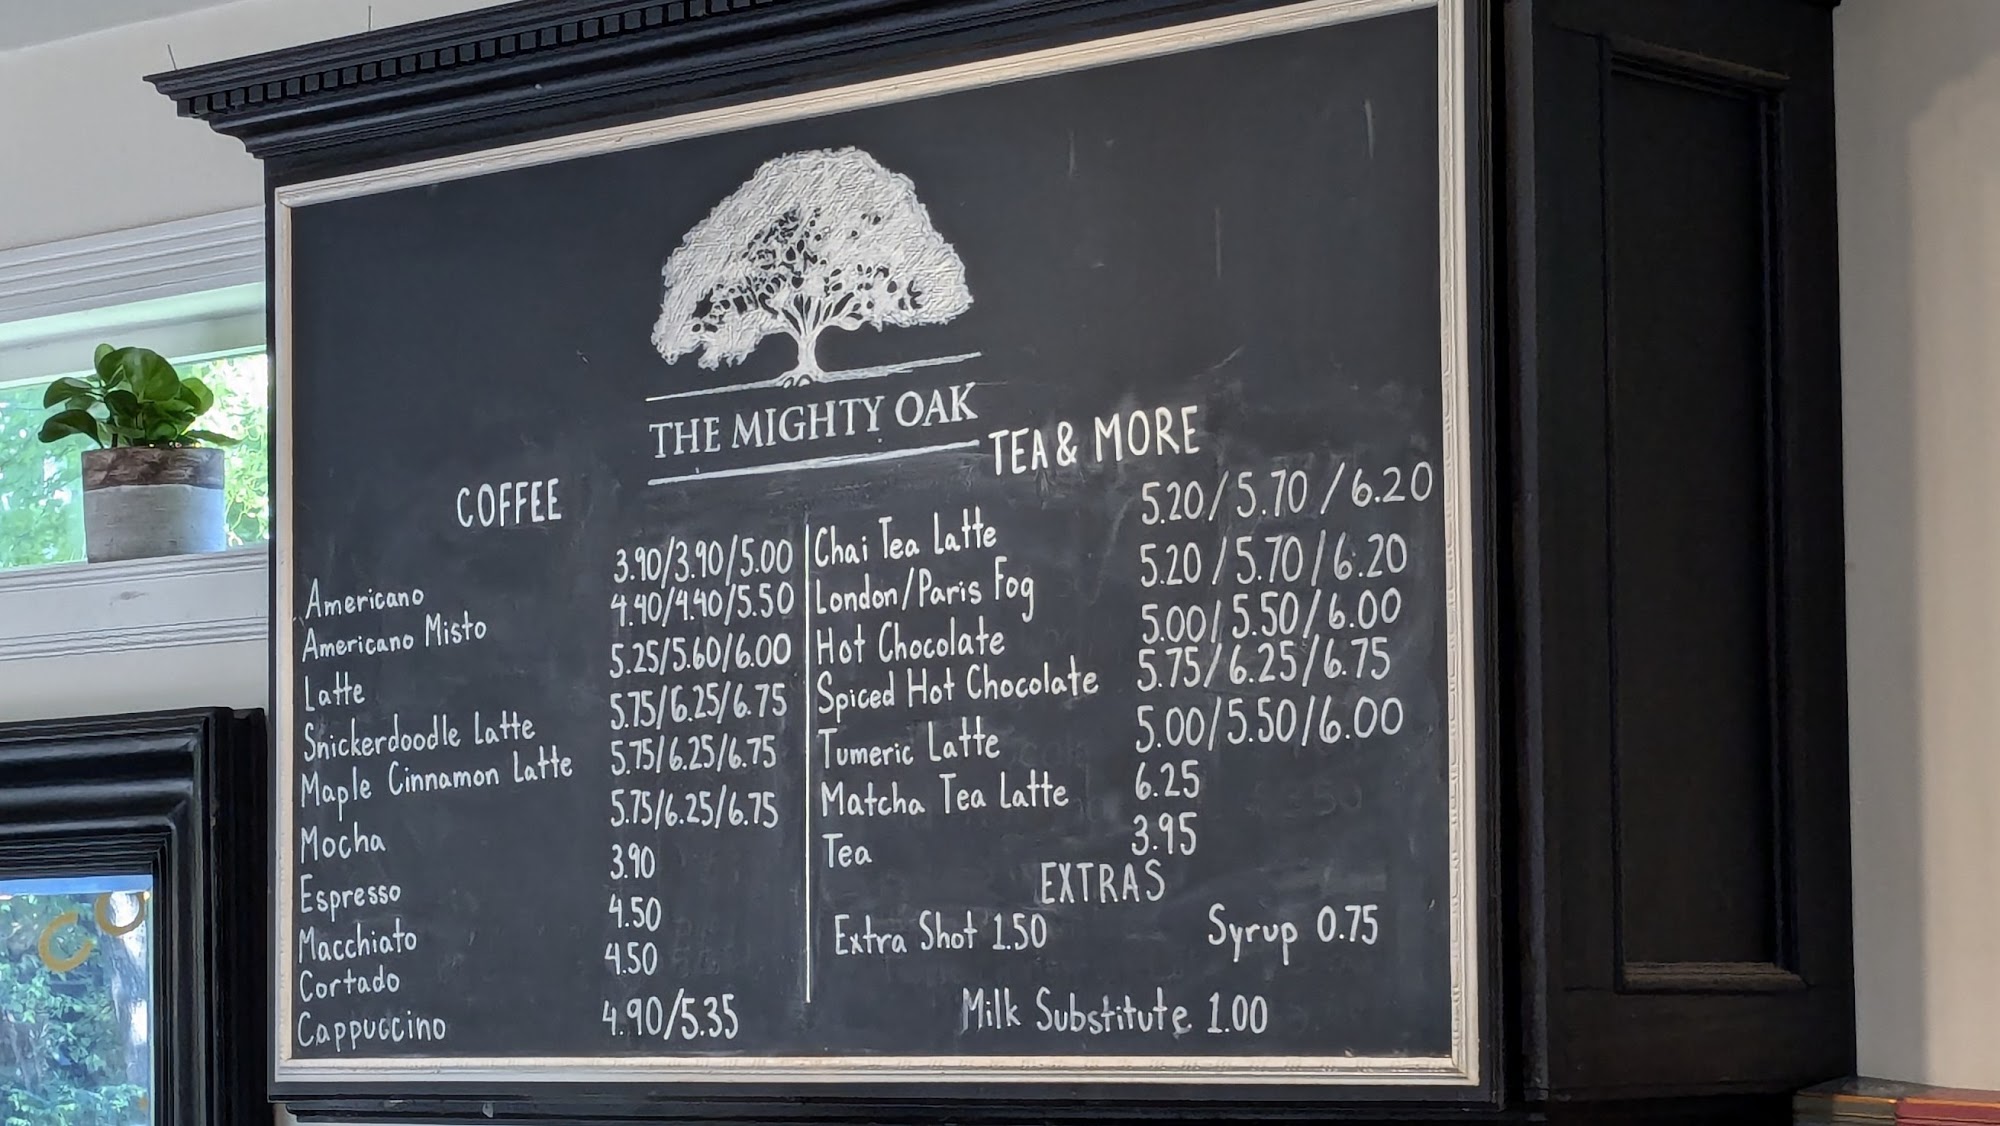 THE MIGHTY OAK
COFFEE
Americano 3.90/3.90/5.00
Americano Misto 4.40/4.40/5.50
Latte 5.25/5.60/6.00
Snickerdoodle Latte 5.75/6.25/6.75
Maple Cinnamon Latte 5.75/6.25/6.75
Mocha 5.75/6.25/6.75
Espresso 3.90
Macchiato 4.50
Cortado 4.50
Cappuccino 4.90/5.35
TEA & MORE
Chai Tea Latte 5.20/5.70/6.20
London/Paris Fog 5.20/5.70/6.20
Hot Chocolate 5.00/5.50/6.00
Spiced Hot Chocolate 5.75/6.25/6.75
Tumeric Latte 5.00/5.50/6.00
Matcha Tea Latte 6.25
Tea 3.95
EXTRAS
Extra Shot 1.50 Syrup 0.75
Milk Substitute 1.00